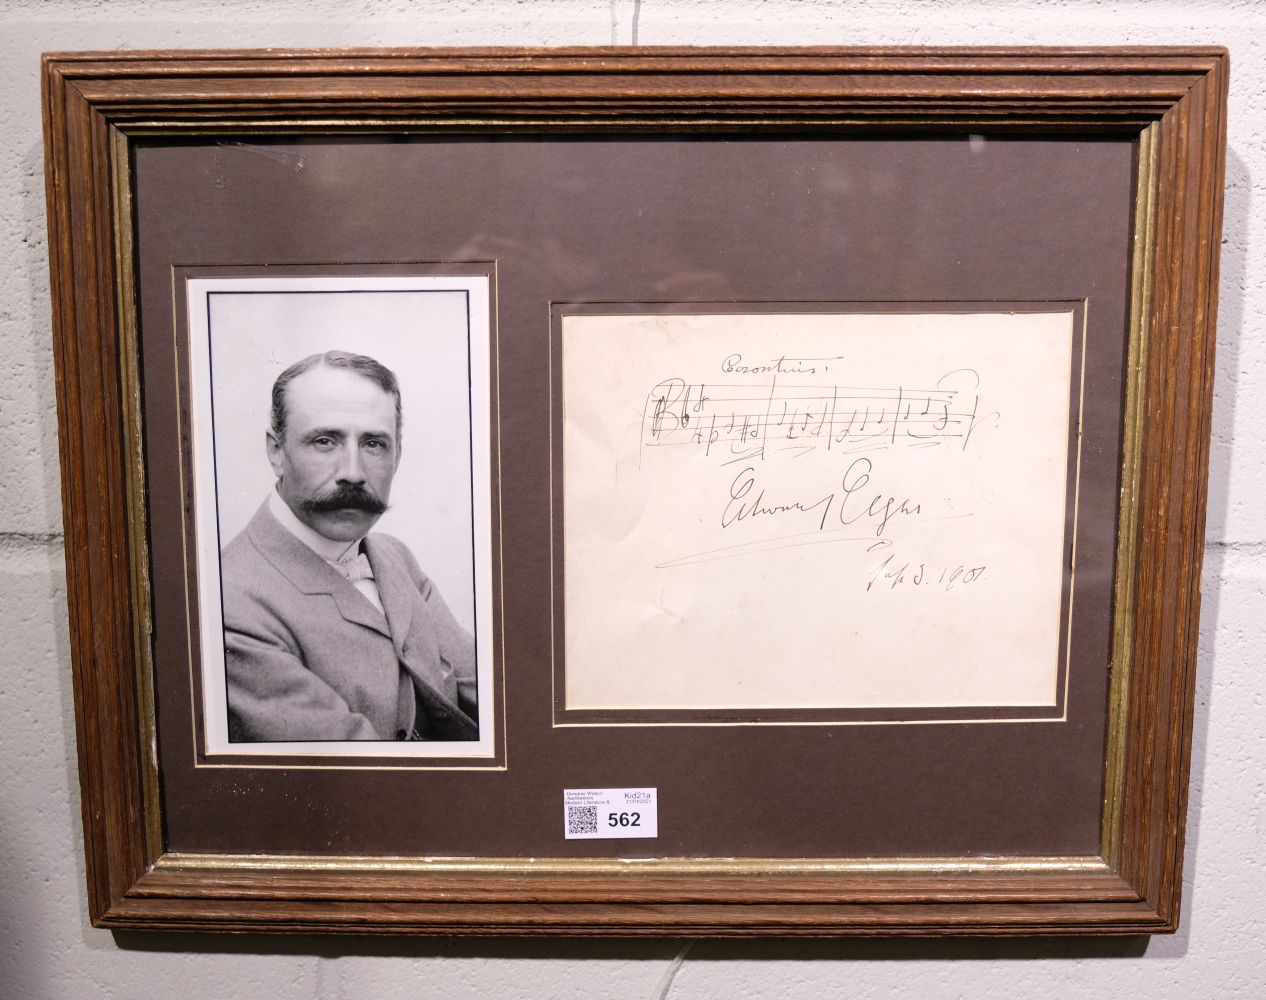 Gerontius:
Edward Elgar
Sep 3. 1901.
Dominic Winter
Auctioneers
Modern Literature &
Kid21a
21/01/2021
562